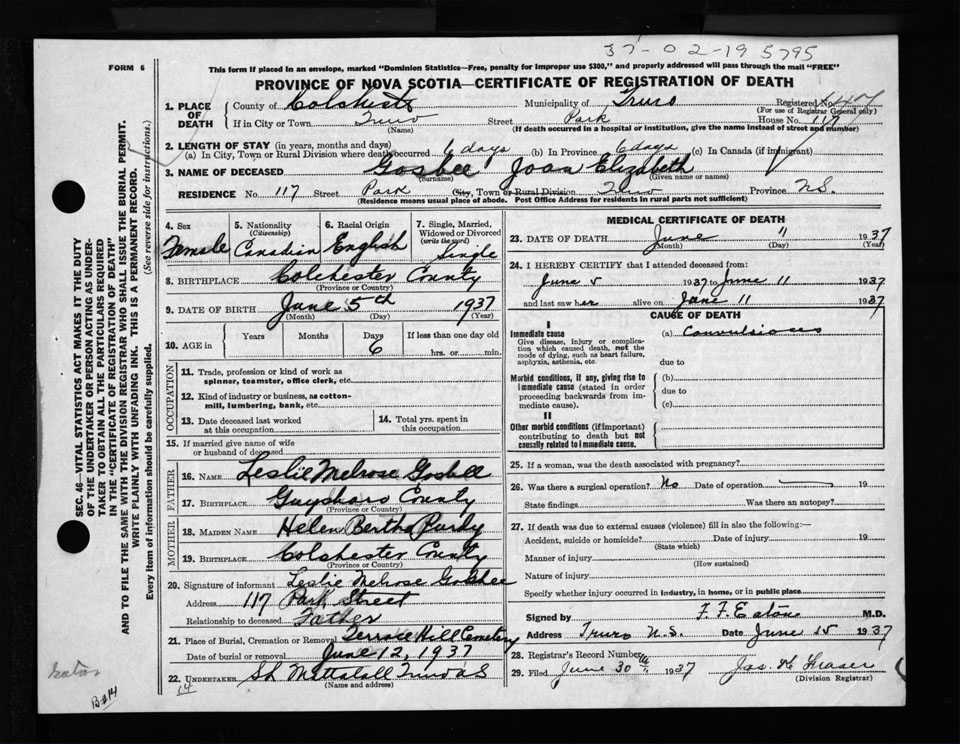 37-02-19 5795
FORM 6
This form if placed in an envelope, marked "Dominion Statistics—Free, penalty for improper use $300," and properly addressed will pass through the mail "FREE"
PROVINCE OF NOVA SCOTIA—CERTIFICATE OF REGISTRATION OF DEATH
1. PLACE OF DEATH County of Colchester Municipality of Truro Registered No.
(For use of Registrar General only)
If in City or Town Truro Street Park House No. 117
(Name) (If death occurred in a hospital or institution, give the name instead of street and number)
2. LENGTH OF STAY (in years, months and days)
(a) In City, Town or Rural Division where death occurred 6 days (b) In Province 6 days (c) In Canada (if immigrant)
3. NAME OF DECEASED Gosbee Joan Elizabeth
(Surname) (Given name or names)
RESIDENCE No. 117 Street Park City, Town or Rural Division Truro Province N.S.
(Residence means usual place of abode. Post Office Address for residents in rural parts not sufficient)
4. Sex Female
5. Nationality (Citizenship) Canadian
6. Racial Origin English
7. Single, Married, Widowed or Divorced (write the word) Single
8. BIRTHPLACE Colchester County
(Province or Country)
9. DATE OF BIRTH June 5th 1937
(Month) (Day) (Year)
10. AGE in Years Months Days 6 If less than one day old hrs. or min.
OCCUPATION
11. Trade, profession or kind of work as spinner, teamster, office clerk, etc.
12. Kind of industry or business, as cotton-mill, lumbering, bank, etc.
13. Date deceased last worked at this occupation
14. Total yrs. spent in this occupation
15. If married give name of wife or husband of deceased
FATHER
16. NAME Leslie Melrose Gosbee
17. BIRTHPLACE Guysboro County
(Province or Country)
MOTHER
18. MAIDEN NAME Helen Bertha Purdy
19. BIRTHPLACE Colchester County
(Province or Country)
20. Signature of informant Leslie Melrose Gosbee
Address 117 Park Street
Relationship to deceased Father
21. Place of Burial, Cremation or Removal Terrace Hill Cemetery
Date of burial or removal June 12, 1937
22. UNDERTAKER Mattatall Truro N S
(Name and address)
14
MEDICAL CERTIFICATE OF DEATH
23. DATE OF DEATH June 11 1937
(Month) (Day) (Year)
24. I HEREBY CERTIFY that I attended deceased from:
June 5 1937 to June 11 1937
and last saw her alive on June 11 1937
CAUSE OF DEATH
I
Immediate cause (a) Convulsions
Give disease, injury or complication which caused death, not the mode of dying, such as heart failure, asphyxia, asthenia, etc.
due to
Morbid conditions, if any, giving rise to immediate cause (stated in order proceeding backwards from immediate cause).
(b)
due to
(c)
II
Other morbid conditions (if important) contributing to death but not causally related to immediate cause.
25. If a woman, was the death associated with pregnancy?
26. Was there a surgical operation? No Date of operation 19
State findings Was there an autopsy?
27. If death was due to external causes (violence) fill in also the following:—
Accident, suicide or homicide? Date of injury 19
(State which)
Manner of injury
(How sustained)
Nature of injury
Specify whether injury occurred in industry, in home, or in public place
Signed by F. F. Eaton M.D.
Address Truro N.S. Date June 15 1937
28. Registrar's Record Number
29. Filed June 30th 1937 Jas. Fraser
(Division Registrar)
SEC. 46—VITAL STATISTICS ACT MAKES IT THE DUTY
OF THE UNDERTAKER OR PERSON ACTING AS UNDER-
TAKER TO OBTAIN ALL THE PARTICULARS REQUIRED
IN THE "CERTIFICATE OF REGISTRATION OF DEATH"
AND TO FILE THE SAME WITH THE DIVISION REGISTRAR WHO SHALL ISSUE THE BURIAL PERMIT.
WRITE PLAINLY WITH UNFADING INK. THIS IS A PERMANENT RECORD.
Every item of information should be carefully supplied. (See reverse side for instructions.)